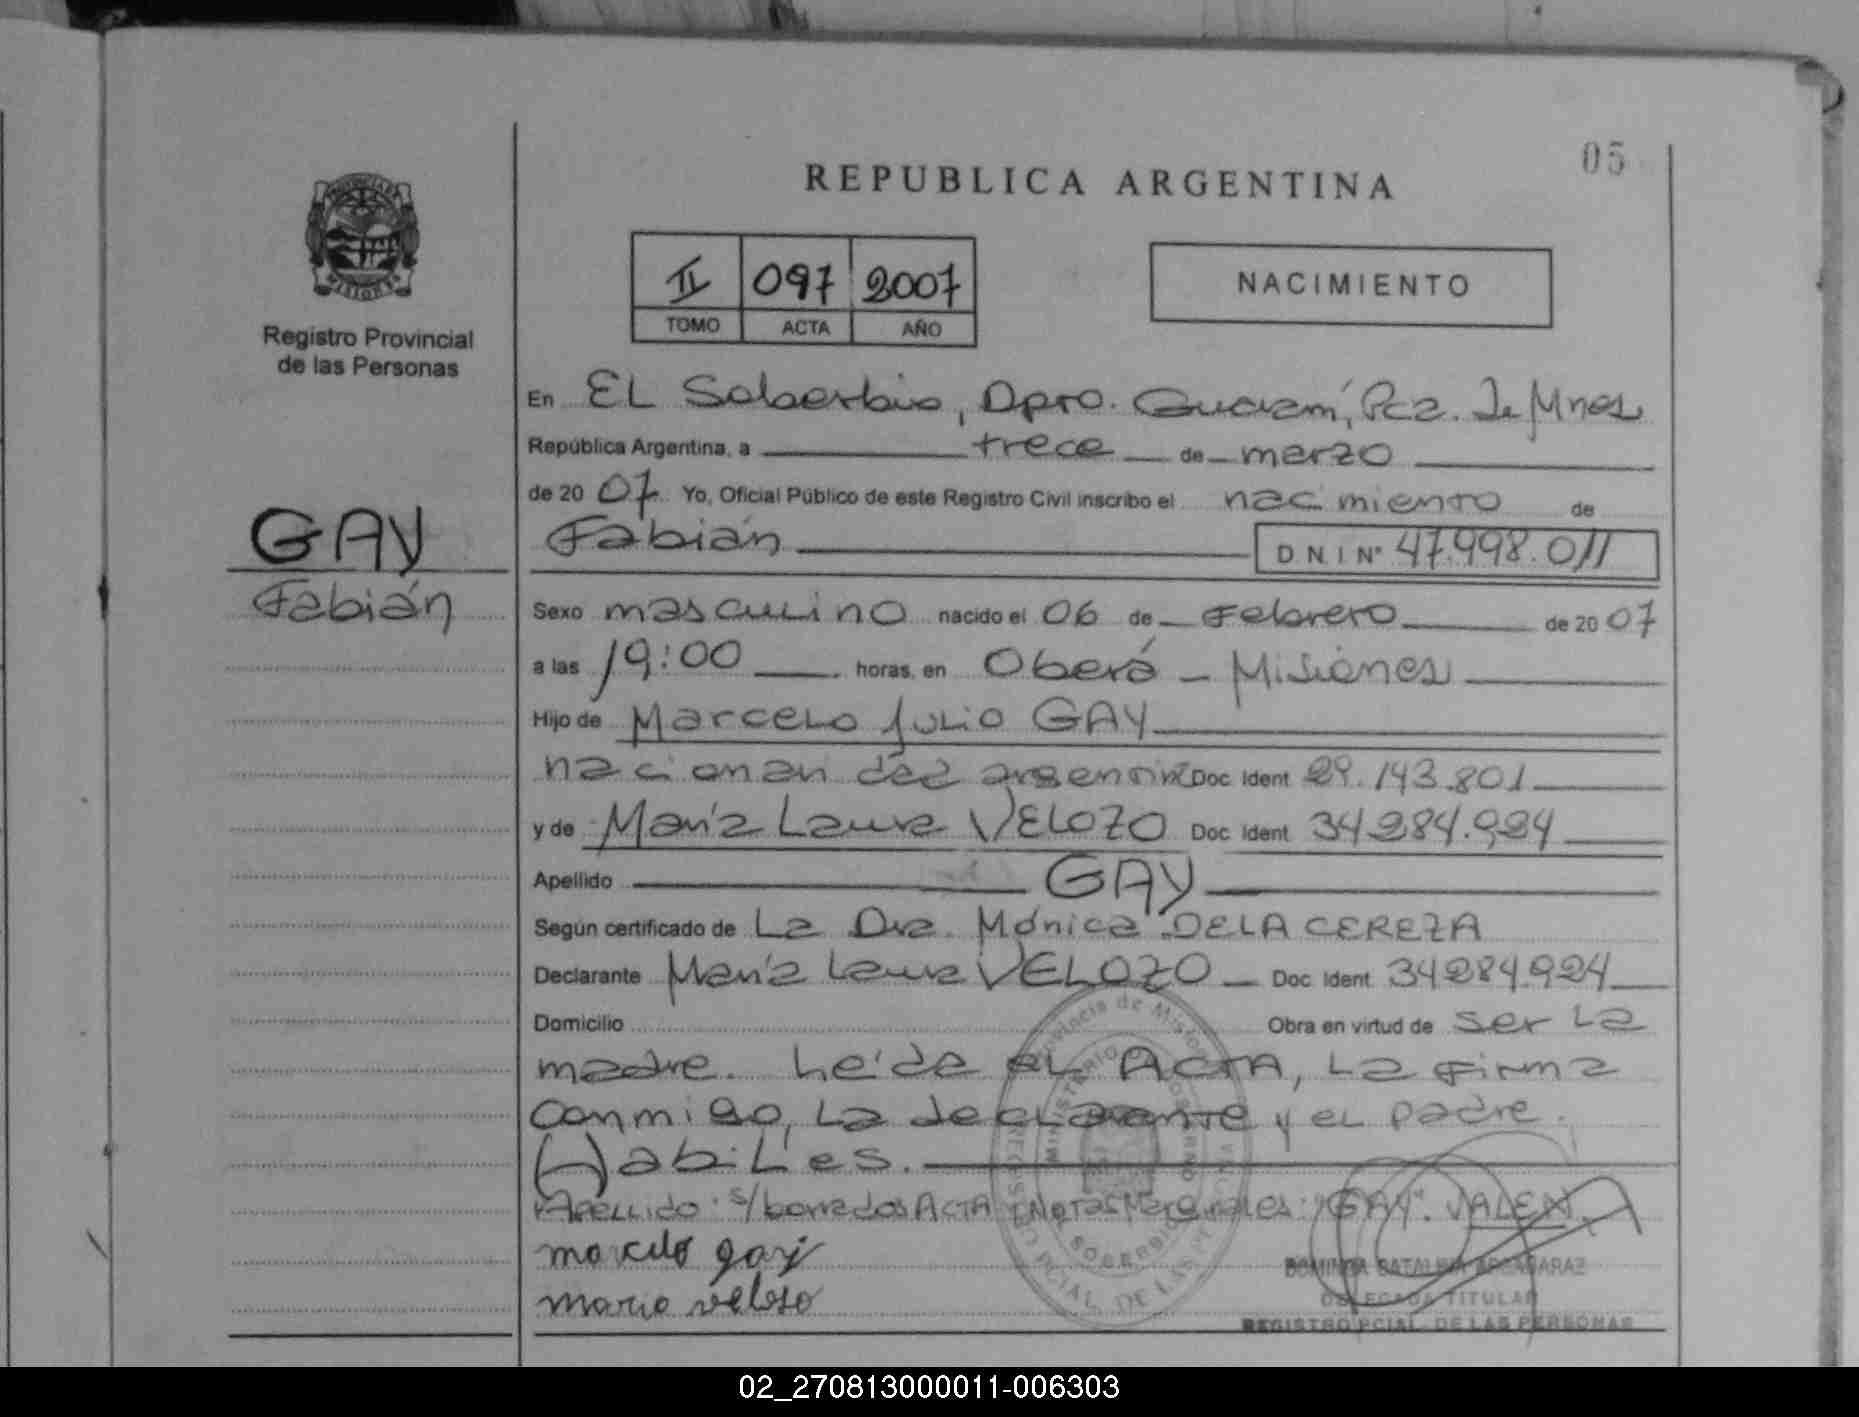 05
REPUBLICA ARGENTINA
PROVINCIA DE MISIONES
Registro Provincial
de las Personas
II 097 2007
TOMO ACTA AÑO
NACIMIENTO
En EL Soberbio, Dpto. Guaraní, Pcz. de Mnes
República Argentina, a trece de marzo
de 20 07 Yo, Oficial Público de este Registro Civil inscribo el nacimiento de
GAY
Fabián
Fabián D N I Nº 47.998.011
Sexo masculino nacido el 06 de Febrero de 20 07
a las 19:00 horas, en Oberá - Misiones
Hijo de Marcelo Julio GAY
nacionalidad argentina Doc. Ident. 29.143.801
y de María Laura VELOZO Doc. Ident. 34284.924
Apellido GAY
Según certificado de La Dra. Mónica DELA CEREZA
Declarante María Laura VELOZO Doc. Ident. 34284.924
Domicilio Obra en virtud de ser La
madre. Leída el ACTA, La firma
conmigo, La declarante y el padre.
Habiles.
Apellido: s/borrados ACTA y Notas Marginales: "GAY". VALEN.
marcelo gay
maria veloso
Provincia de Misiones
MINISTERIO DE GOBIERNO
REGISTRO PCIAL. DE LAS PERSONAS
SOBERBIO
DOMINGA CATALINA
DELEGADA TITULAR
REGISTRO PCIAL. DE LAS PERSONAS
02_270813000011-006303